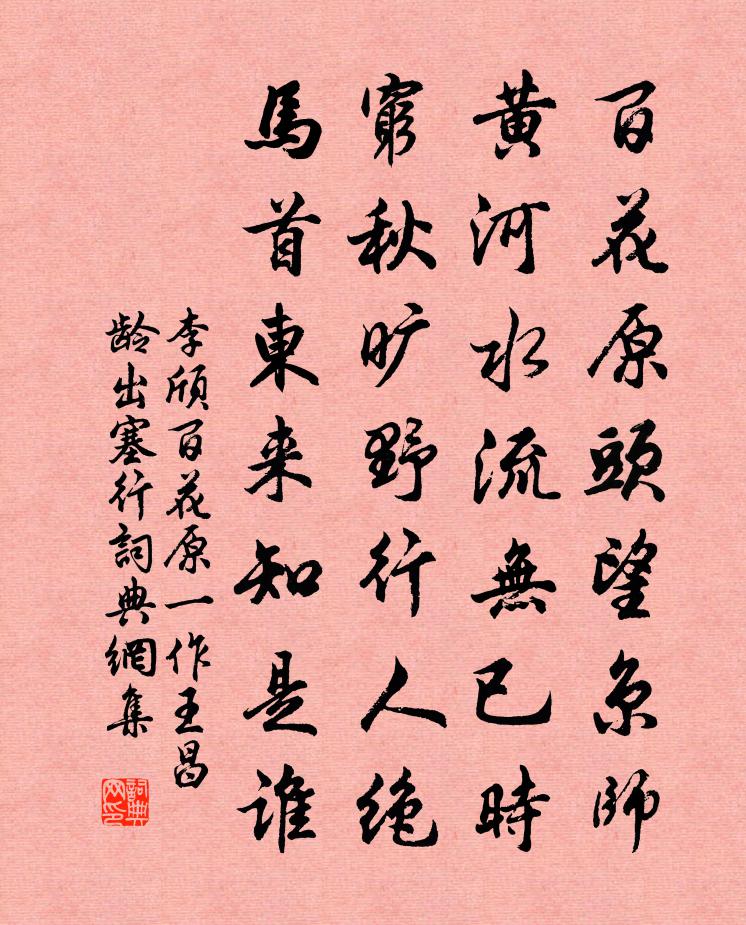 百花原頭望京師
黄河水流無已時
窮秋旷野行人絶
馬首東来知是誰
李頎百花原一作王昌
龄出塞行詞典網集
詞典网印